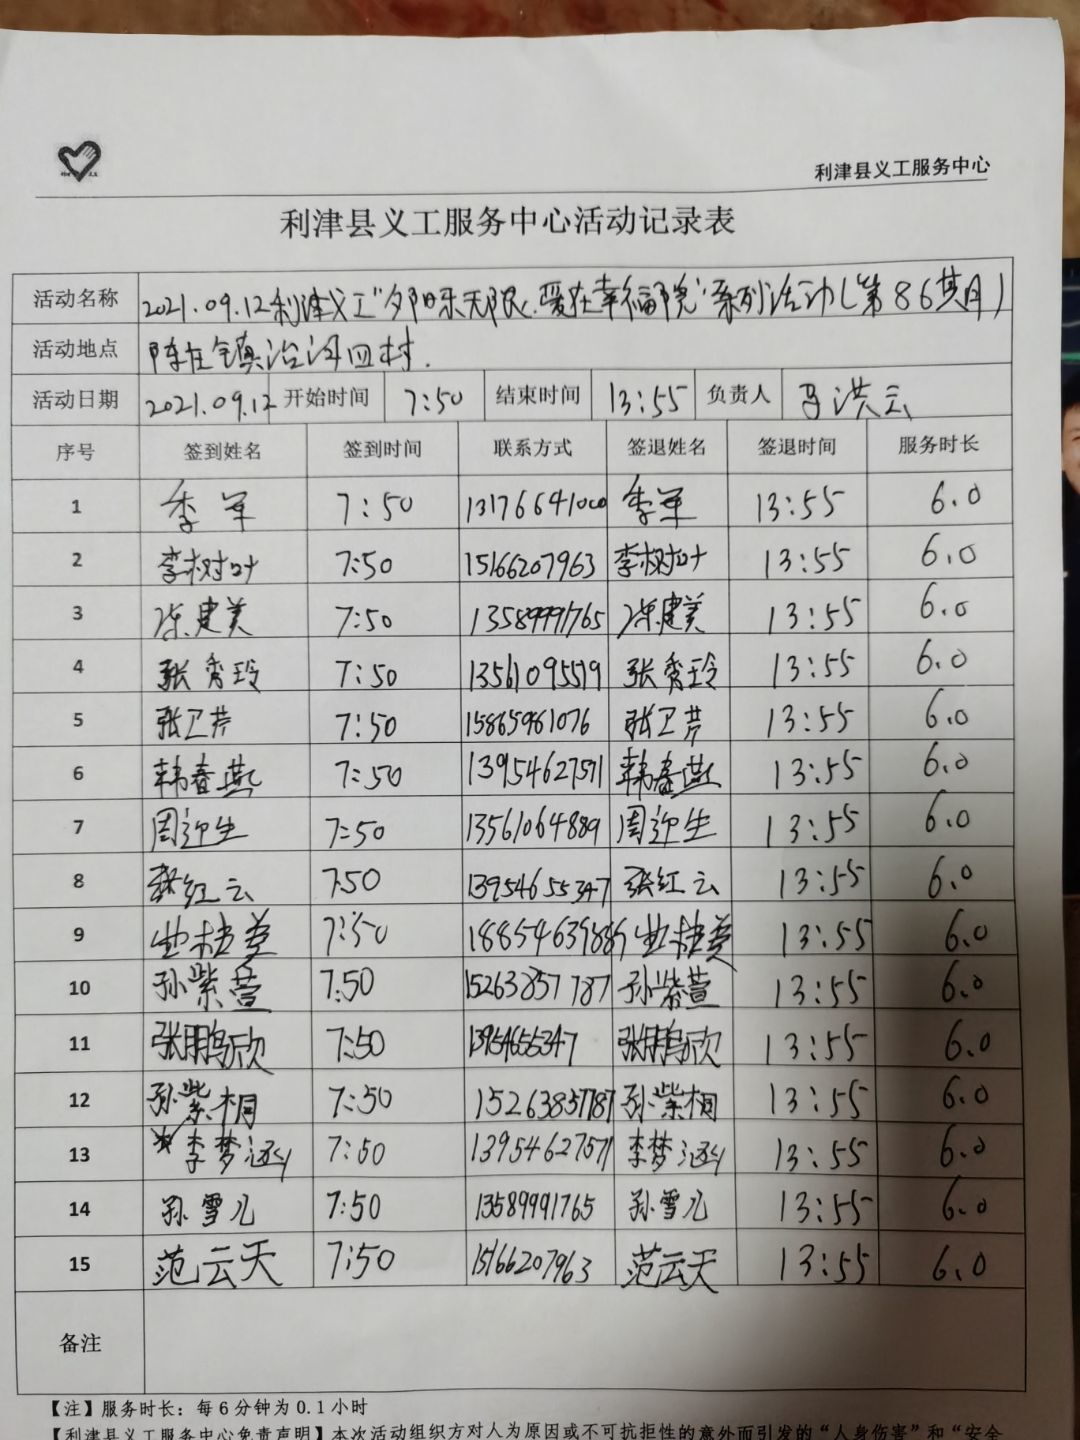 利津县义工服务中心
利津县义工服务中心活动记录表
活动名称 2021.09.12利津义工"夕阳乐无限.爱在幸福院"系列活动(第86其月)
活动地点 陈庄镇治河四村.
活动日期 2021.09.12 开始时间 7:50 结束时间 13:55 负责人 马洪云
序号 签到姓名 签到时间 联系方式 签退姓名 签退时间 服务时长
1 李军 7:50 13176641000 李军 13:55 6.0
2 李树叶 7:50 15166207963 李树叶 13:55 6.0
3 陈建美 7:50 13589991765 陈建美 13:55 6.0
4 张秀玲 7:50 13561095579 张秀玲 13:55 6.0
5 张卫芹 7:50 15865981076 张卫芹 13:55 6.0
6 韩春燕 7:50 13954627571 韩春燕 13:55 6.0
7 周迎生 7:50 13561064889 周迎生 13:55 6.0
8 张红云 7:50 13954655347 张红云 13:55 6.0
9 7:50 13:55 6.0
10 孙紫萱 7:50 15263857787 孙紫萱 13:55 6.0
11 张鹏欣 7:50 13954655347 张鹏欣 13:55 6.0
12 孙紫桐 7:50 15263857787 孙紫桐 13:55 6.0
13 李梦涵 7:50 13954627571 李梦涵 13:55 6.0
14 孙雪儿 7:50 13589991765 孙雪儿 13:55 6.0
15 范云天 7:50 15166207963 范云天 13:55 6.0
备注
【注】服务时长：每6分钟为0.1小时
【利津县义工服务中心免责声明】本次活动组织方对人为原因或不可抗拒性的意外而引发的"人身伤害"和"安全